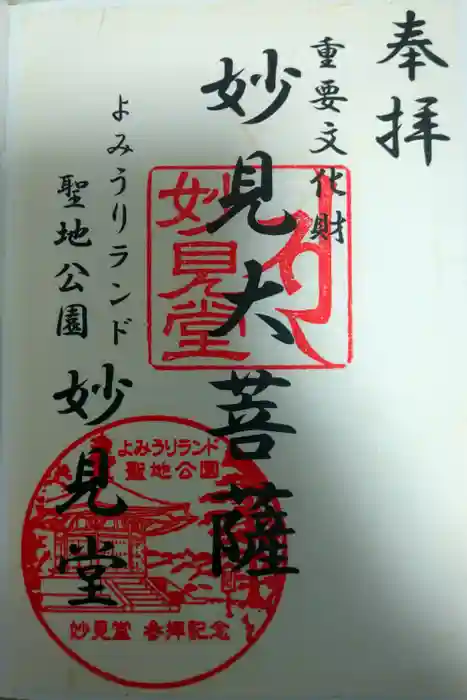 奉拝
重要文化財
妙見大菩薩
よみうりランド
聖地公園
妙見堂
妙見堂
よみうりランド
聖地公園
妙見堂 参拝記念